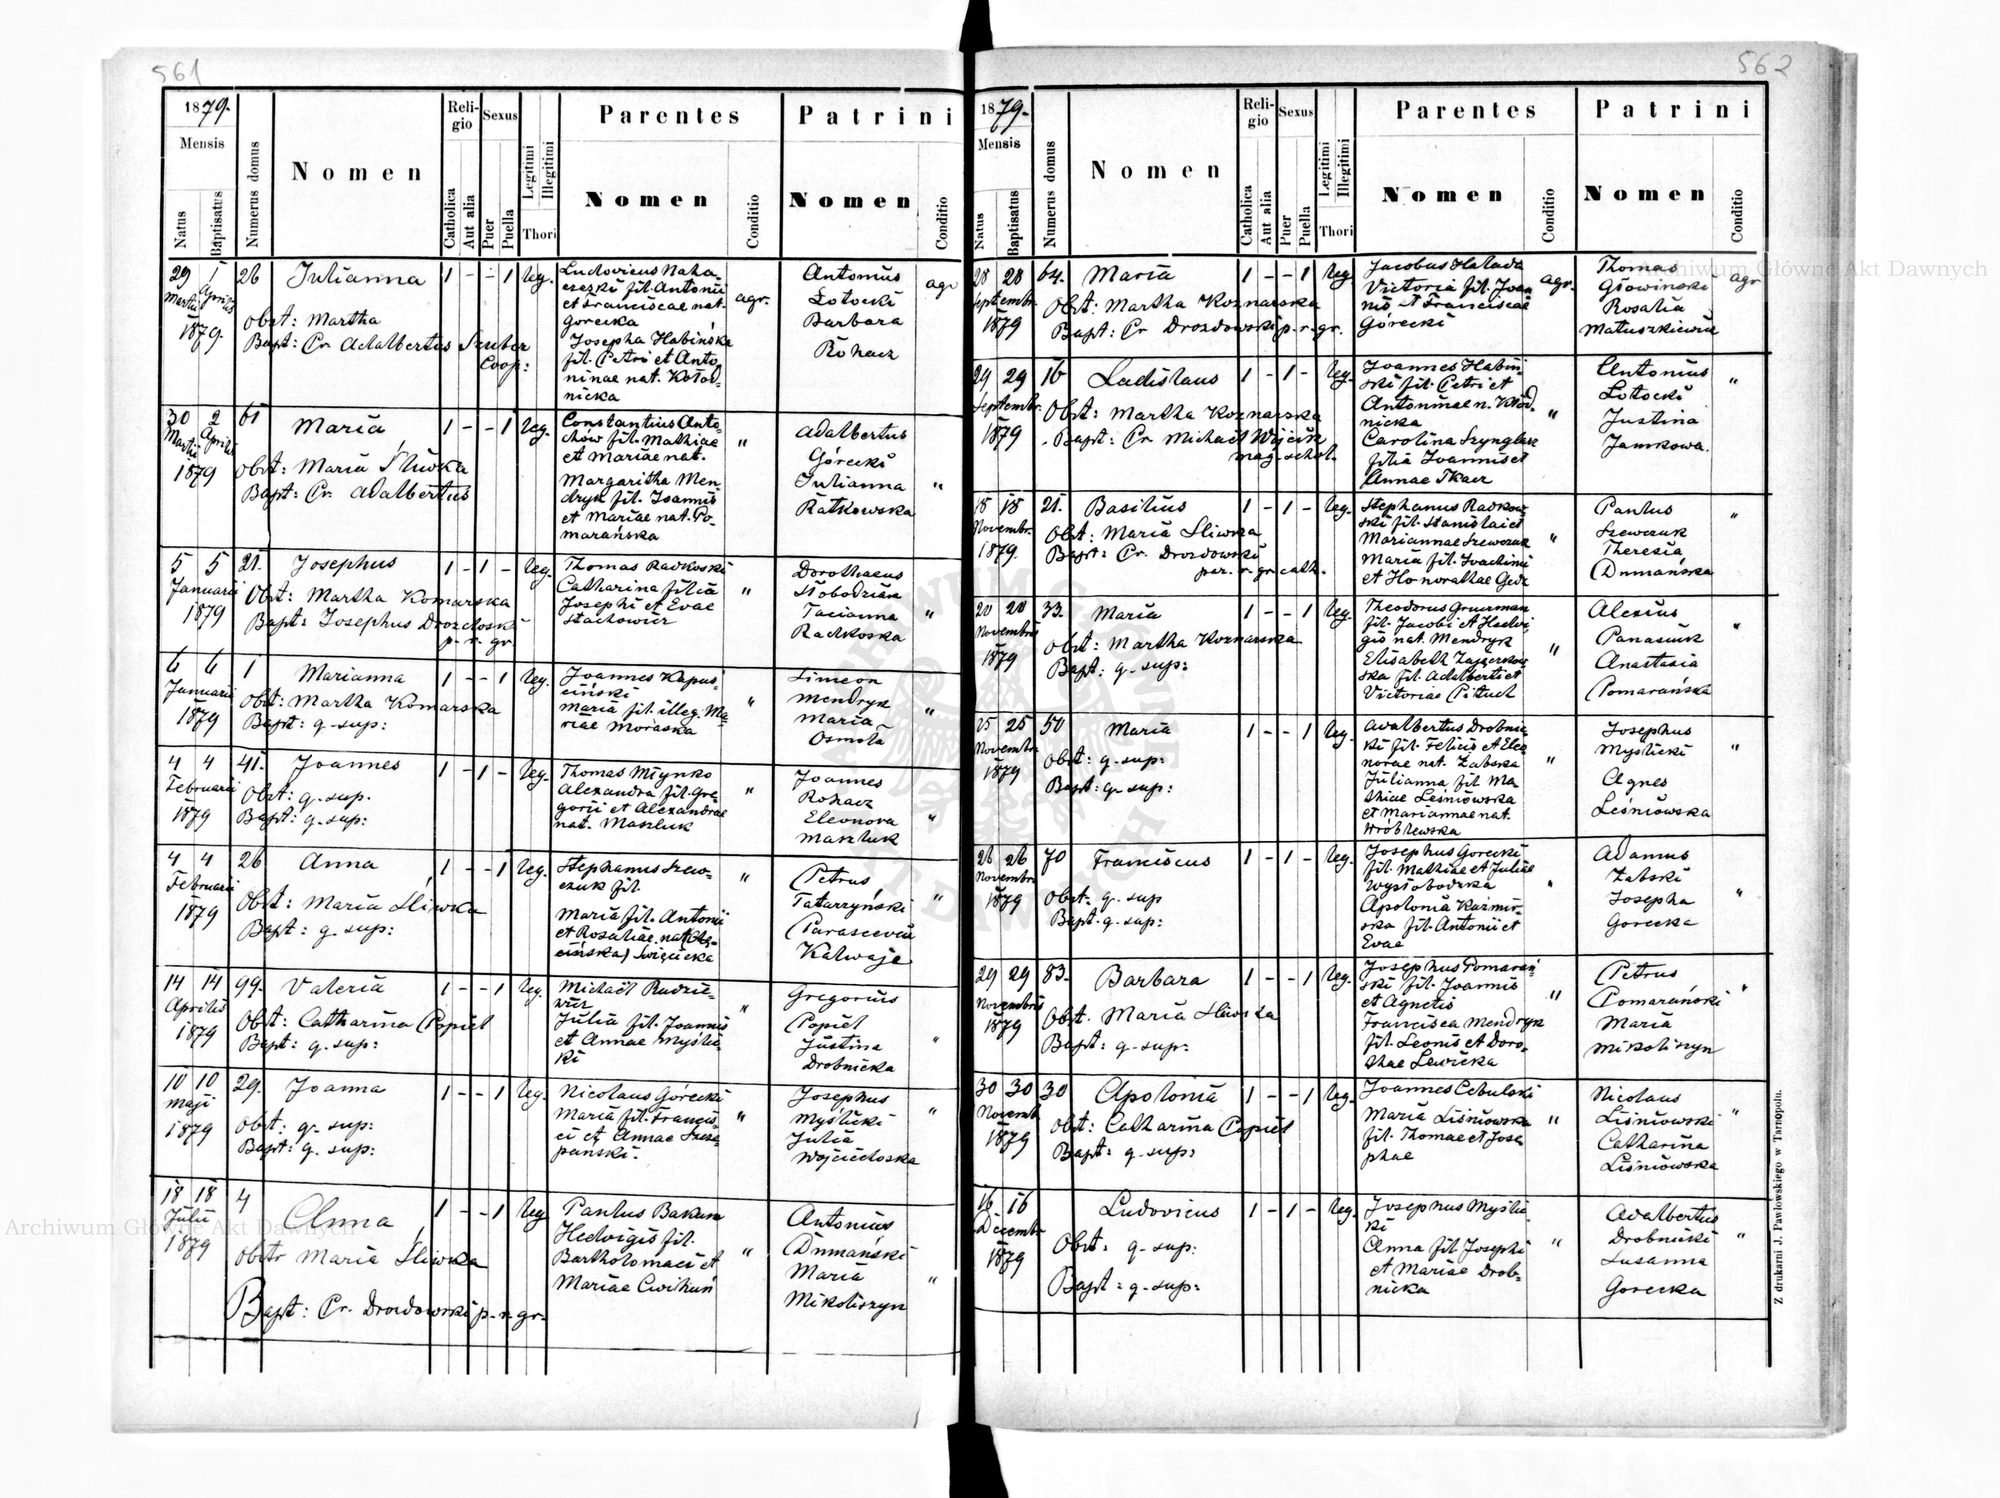 561
1879.
Mensis
Natus
Baptisatus
Numerus domus
Nomen
Religio
Catholica
Aut alia
Sexus
Puer
Puella
Legitimi
Illegitimi
Thori
Parentes
Nomen
Conditio
Patrini
Nomen
Conditio
29 1 26 Julianna 1 - - 1 leg.
Martii Aprilis
1879.
Obst: Martha
Bapt: Cr. Adalbertus Szuber
Coop:
Ludovicus Naha-
czezki fil. Antonii
et Franciscae nat.
Gorecka
Josepha Habińska
fil. Petri et Anto-
ninae nat. Kołod-
nicka
agr.
Antonius
Łotocki
Barbara
Rohacz
agr
30 2 61 Maria 1 - - 1 leg.
Martii Aprilis
1879
Obst: Maria Śliwka
Bapt: Cr. Adalbertus
Constantius Anto-
chow fil. Mathiae
et Mariae nat.
Margaritha Men-
dryk fil. Joannis
et Mariae nat. Po-
marańska
"
Adalbertus
Górecki
Julianna "
Ratkowska
5 5 21. Josephus 1 - 1 - leg.
Januarii
1879
Obst: Martha Komarska
Bapt: Josephus Drozdoski
p. r. gr.
Thomas Radkoski
Catharina filia
Josephi et Evae
Stachowicz
"
Dorothaeus
Słobodzian
Tacianna "
Radkoska
6 6 1 Marianna 1 - - 1 leg.
Januarii
1879
Obst: Martha Komarska
Bapt: q. sup:
Joannes Kapus-
ciński
Maria fil. illeg. Ma-
riae Moraska
"
Simeon
Mendryk
Maria "
Osmola
4 4 41. Joannes 1 - 1 - leg.
Februarii
1879
Obst: q. sup.
Bapt: q. sup:
Thomas Młynko
Alexandra fil. Gre-
gorii et Alexandrae
nat. Maszluk
"
Joannes
Rohacz
Eleonora "
Maszluk
4 4 26 Anna 1 - - 1 leg.
Februarii
1879
Obst: Maria Śliwka
Bapt: q. sup:
Stephanus Szew-
czuk fil.
Maria fil. Antonii
et Rosaliae nat.
Święcicka
"
Petrus
Tatarzyński "
Parascevia
Kalwaje
14 14 99. Valeria 1 - - 1 leg.
Aprilis
1879
Obst: Catharina Popiel
Bapt: q. sup:
Michaël Rudzie-
wicz
Julia fil. Joannis
et Annae Myślic-
ki
"
Gregorius
Popiel
Justina "
Drobnicka
10 10 29. Joanna 1 - - 1 leg.
Maji
1879
Obst: q. sup:
Bapt: q. sup:
Nicolaus Górecki
Maria fil. Francis-
ci et Annae Szcze-
pański.
"
Josephus
Myślicki "
Julia
Wojciechoska
18 18 4 Anna 1 - - 1 leg
Julii
1879
Obstr Maria Śliwka
Bapt: Cr. Drozdowski p. r. gr.
Paulus Bakun
Hedvigis fil.
Bartholomaei et
Mariae Cwikun
"
Antonius
Dumański
Maria "
Mikoliszyn
562
1879.
Mensis
Natus
Baptisatus
Numerus domus
Nomen
Religio
Catholica
Aut alia
Sexus
Puer
Puella
Legitimi
Illegitimi
Thori
Parentes
Nomen
Conditio
Patrini
Nomen
Conditio
28 28 64. Maria 1 - - 1 leg
Septembr.
1879
Obst: Martha Koznarska
Bapt: Cr Drozdowski p. r. gr.
Jacobus Halada
Victoria fil. Joan-
nis et Franciscae
Górecki
agr.
Thomas
Głowiński
Rosalia
Matuszkiewicz
agr
29 29 16 Ladislaus 1 - 1 - leg.
Septembr.
1879
Obst: Martha Koznarska
Bapt: Cr Michaël Wojcik
mag. schol.
Joannes Habiń-
ski fil. Petri et
Antoninae n. Kłod-
nicka
Carolina Szynglarz
filia Joannis et
Annae Tkacz
"
Antonius
Łotocki
Justina
Jamkowa.
"
18 18 21. Basilius 1 - 1 - leg.
Novembr.
1879.
Obst: Maria Śliwka
Bapt: Cr. Drozdowski
par. r. gr. cath.
Stephanus Radkow-
ski fil. Stanislai et
Mariannae Szewczuk
Maria fil. Joachimi
et Honorathae Gedz
"
Paulus
Szewczuk
Theresia
Dumańska
"
20 20 33. Maria 1 - - 1 leg.
Novembris
1879
Obst: Martha Koznarska
Bapt: q. sup:
Theodorus Gruerman
fil. Jacobi et Hedvi-
gis nat. Mendryk
Elisabeth Zajączkow-
ska fil. Adalberti et
Victoriae Pituch
"
Alexius
Panasiuk
Anastasia
Pomarańska
"
25 25 50 Maria 1 - - 1 leg.
Novembr.
1879
Obst: q. sup:
Bapt: q. sup:
Adalbertus Drobnic-
ki fil. Felicis et Eleo-
norae nat. Żabska
Julianna fil. Ma-
thiae Leśniowska
et Mariannae nat.
Wróblewska
"
Josephus
Myślicki
Agnes
Leśniowska
"
26 26 70 Franciscus 1 - 1 - leg.
Novembr.
1879
Obst: q. sup
Bapt. q. sup:
Josephus Gorecki
fil. Mathiae et Juliae
Wysłobodzka
Apolonia Kazmir-
ska fil. Antonii et
Evae
"
Adamus
Żabski
Josepha
Gorecka
"
29 29 83. Barbara 1 - - 1 leg.
Novembris
1879
Obst. Maria Śliwska
Bapt: q. sup:
Josephus Pomarań-
ski fil. Joannis
et Agnetis
Francisca Mendryk
fil. Leonis et Doro-
thae Lewicka
"
Petrus
Pomarański
Maria
Mikoliszyn
"
30 30 30 Apolonia 1 - - 1 leg.
Novemb.
1879
Obst: Catharina Popiel
Bapt: q. sup:
Joannes Cebulski
Maria Liśniowska
fil. Thomae et Jose-
phae
"
Nicolaus
Liśniowski
Catharina
Liśniowska
"
16 16 Ludovicus 1 - 1 - leg.
Decembr.
1879
Obst: q. sup:
Bapt: q. sup:
Josephus Myślic-
ki
Anna fil. Josephi
et Mariae Drob-
nicka
"
Adalbertus
Drobnicki
Susanna
Gorecka
"
Z drukarni J. Pawłowskiego w Tarnopolu.
Archiwum Główne Akt Dawnych
Archiwum Główne Akt Dawnych